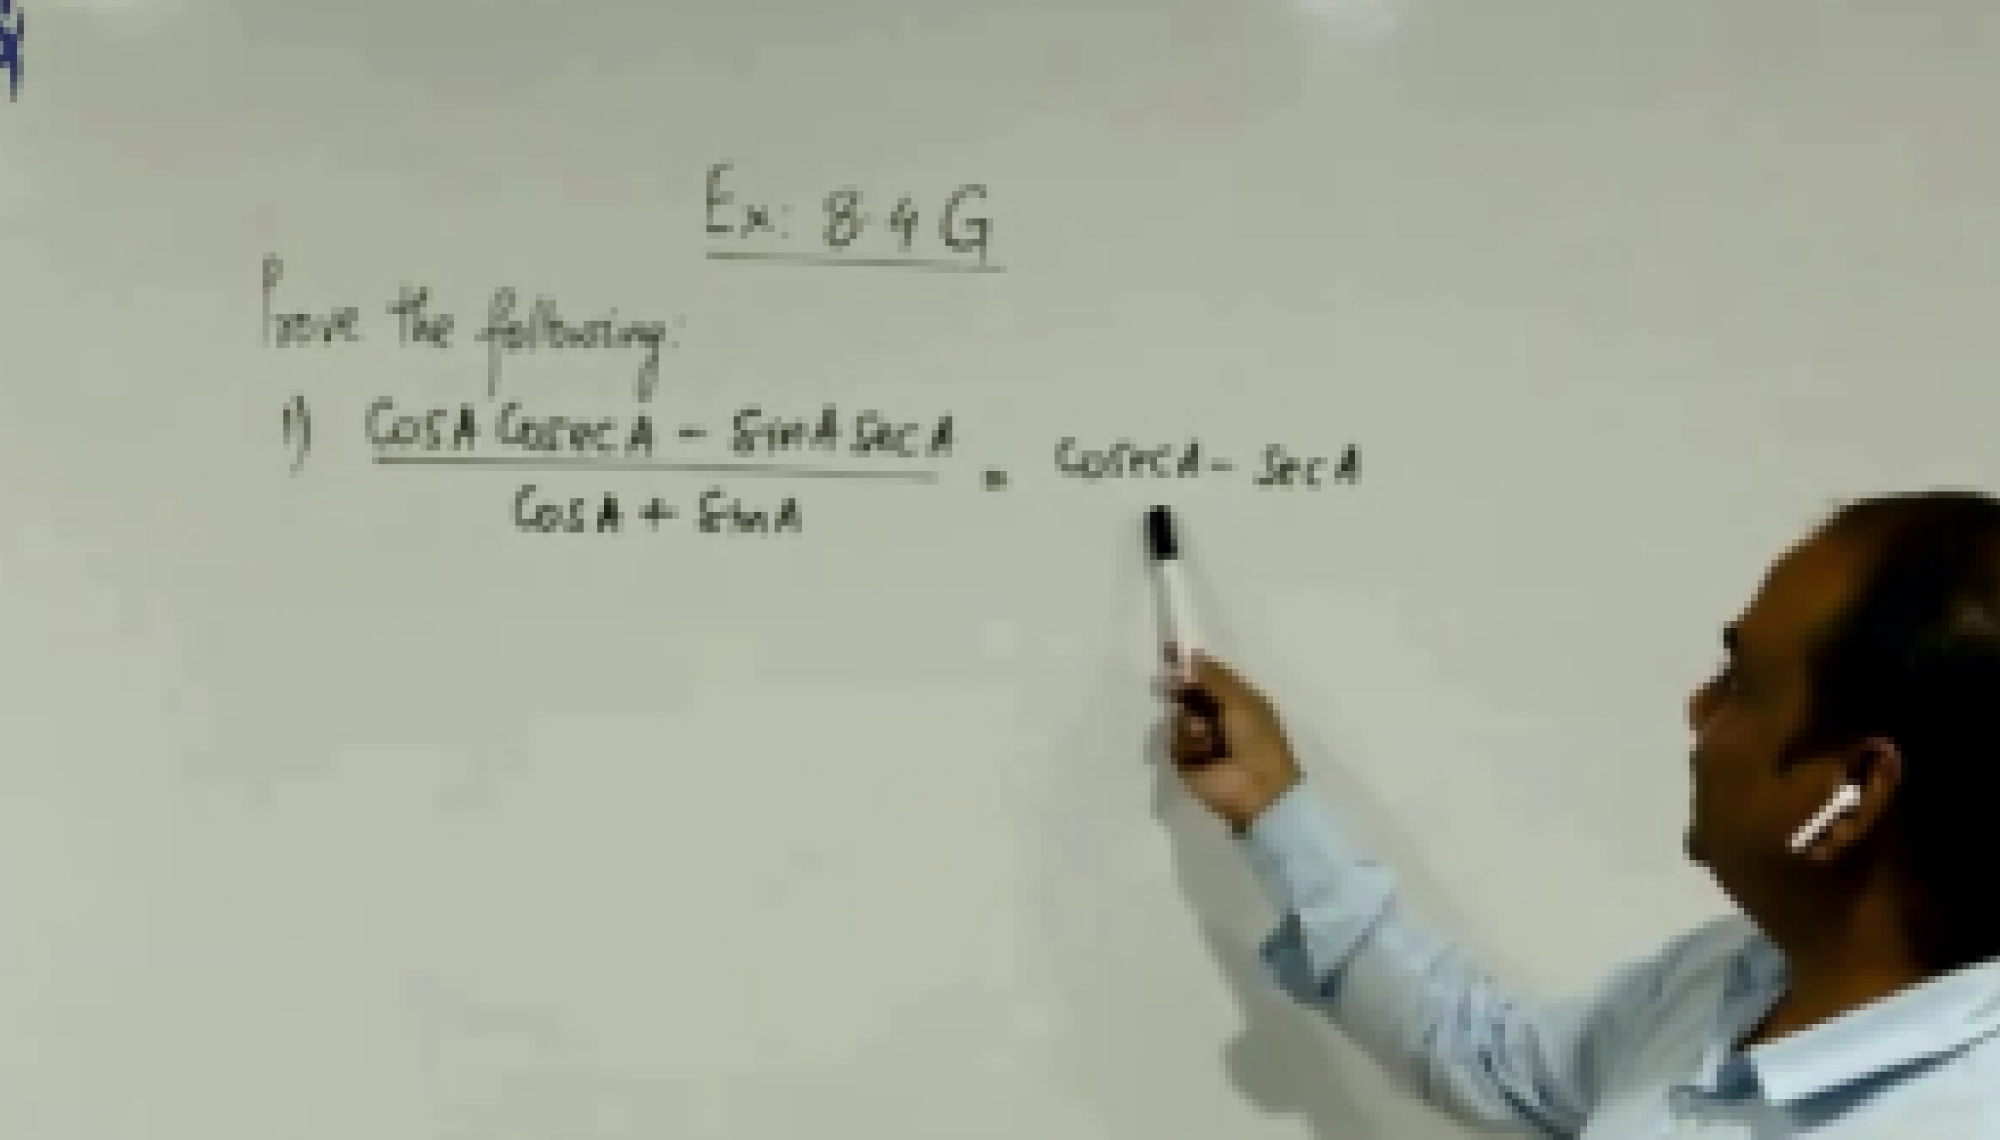 Ex: 8.4 G
Prove the following:
1) CosA CosecA - SinA SecA / CosA + SinA = CosecA - SecA